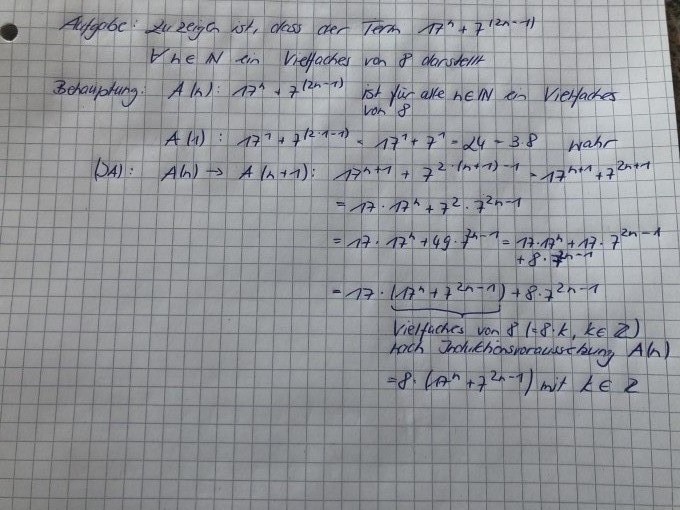 Aufgabe: zu zeigen ist, dass der Term 17ⁿ + 7^(2n-1)
∀ n ∈ ℕ ein Vielfaches von 8 darstellt
Behauptung: A(n): 17ⁿ + 7^(2n-1) ist für alle n ∈ ℕ ein Vielfaches
von 8
A(1): 17¹ + 7^(2·1-1) = 17¹ + 7¹ = 24 = 3·8 wahr
A(n) → A(n+1): 17^(n+1) + 7^(2·(n+1)-1) = 17^(n+1) + 7^(2n+1)
= 17 · 17ⁿ + 7² · 7^(2n-1)
= 17 · 17ⁿ + 49 · 7^(2n-1) = 17·17ⁿ + 17 · 7^(2n-1)
+ 8 · 7^(2n-1)
= 17 · (17ⁿ + 7^(2n-1)) + 8 · 7^(2n-1)
Vielfaches von 8 (=8·k, k ∈ ℤ)
nach Induktionsvoraussetzung A(n)
= 8 · (17ⁿ + 7^(2n-1)) mit k ∈ ℤ